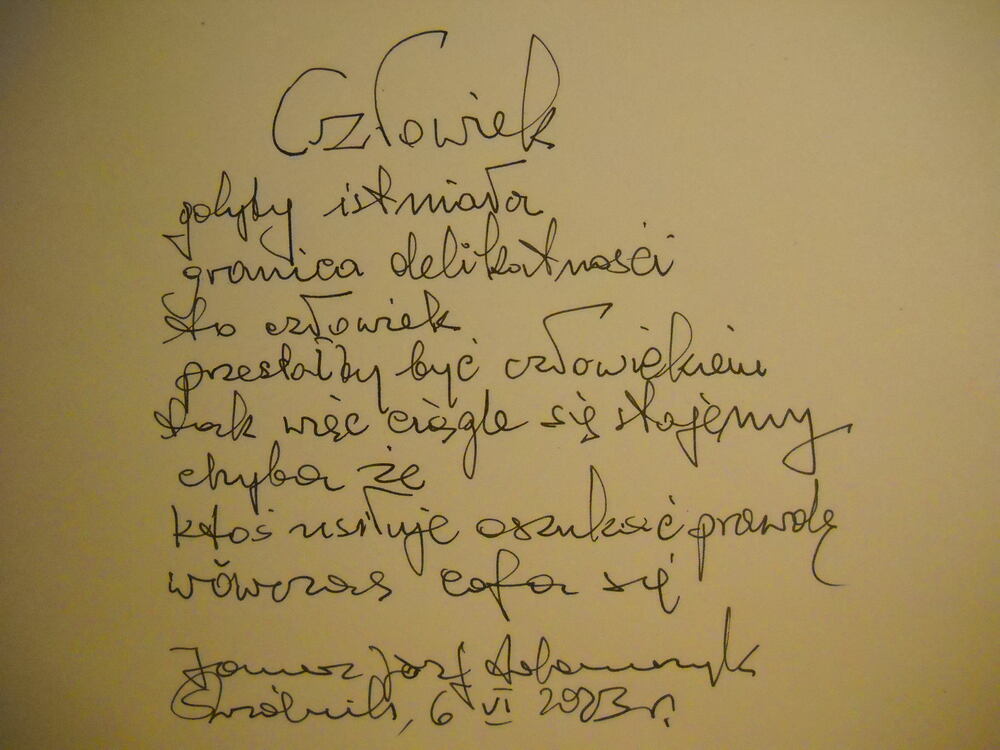 Człowiek
gdyby istniała
granica delikatności
to człowiek
przestałby być człowiekiem
tak więc ciągle się stajemy
chyba że
ktoś usiłuje oszukać prawdę
wówczas cofa się
Janusz Józef Adamczyk
6 VI 2003 r.